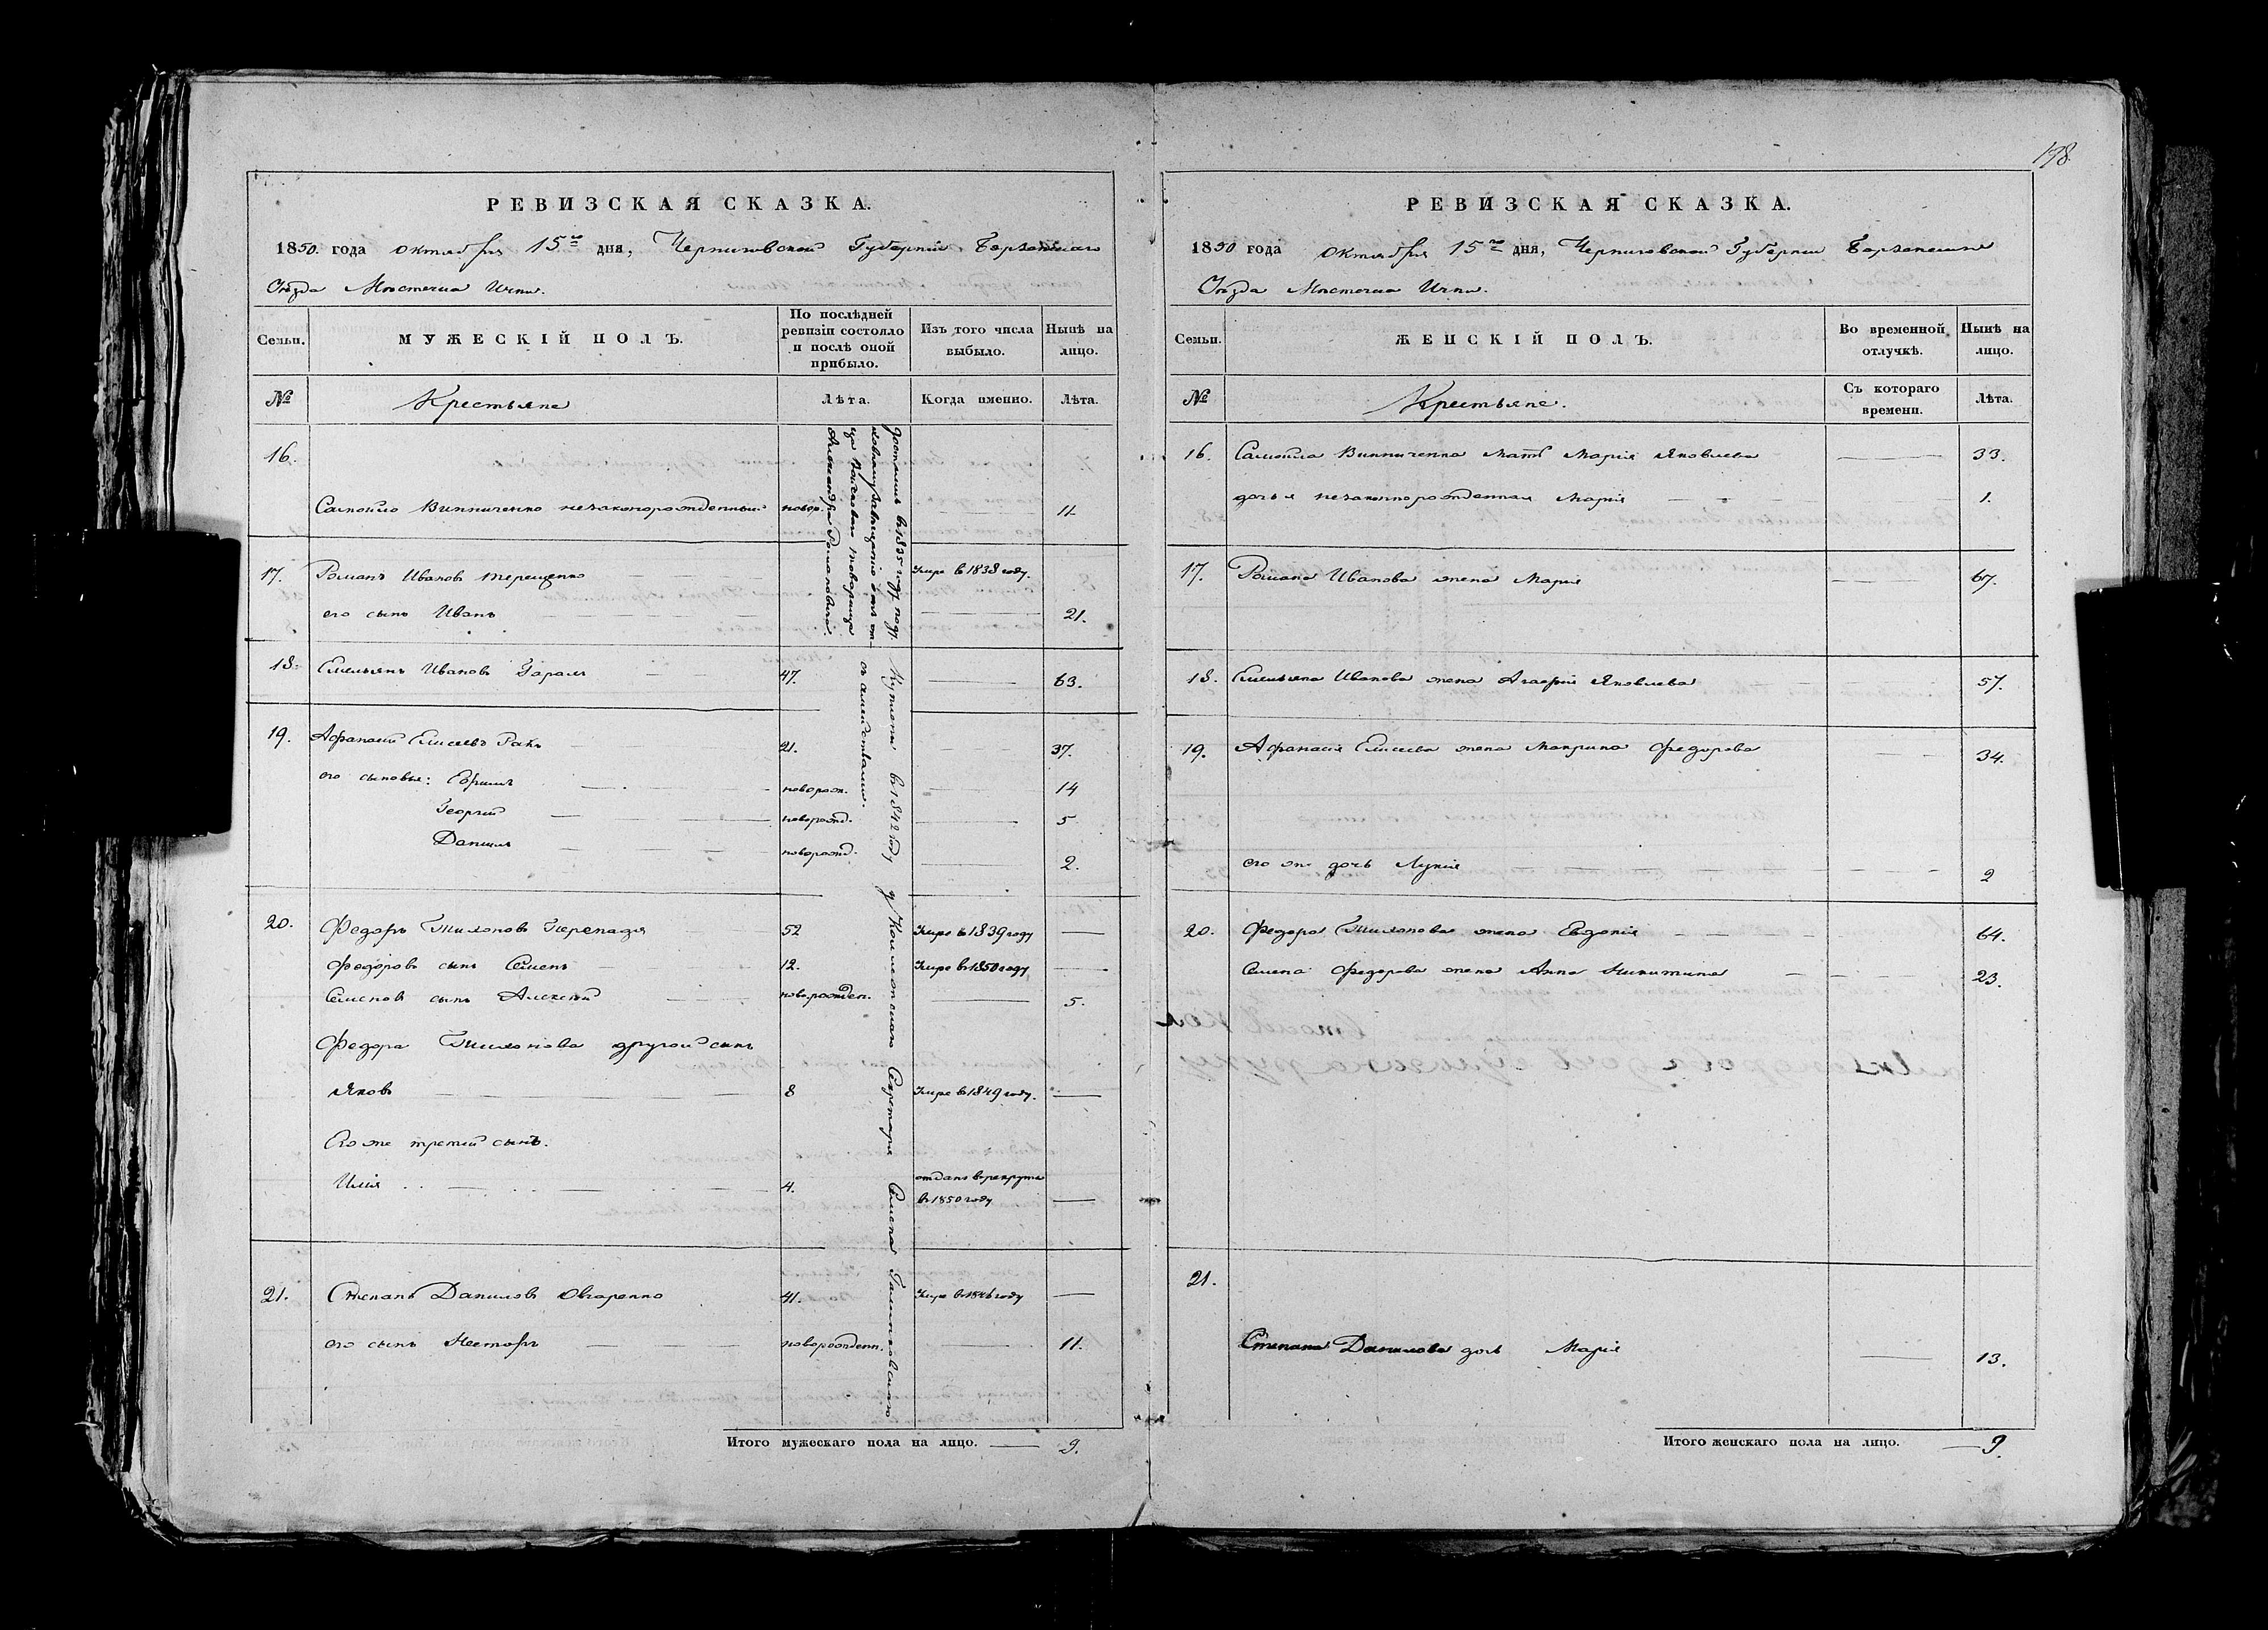 198
РЕВИЗСКАЯ СКАЗКА.
1850. года октября 15го дня, Черниговской Губернии Борзенскаго
Уѣзда Мѣстечка Ични.
Семьи. МУЖЕСКІЙ ПОЛЪ. По послѣдней ревизіи состояло и послѣ оной прибыло. Изъ того числа выбыло. Нынѣ на лицо.
№ Крестьяне Лѣта. Когда именно. Лѣта.
16.
Самойло Винниченко незаконорожденный новор. 11
17. Романъ Ивановъ Терещенко Умре въ 1838 году.
его сынъ Иванъ 21.
18. Емельянъ Ивановъ 47. 63.
19. Афанасій Елисеевъ Ракъ 21. 37.
его сыновья: Ефимъ новорож. 14
Георгій новорожд. 5
Данилъ новорожд. 2.
20. Федоръ Тихоновъ Перепадя 52 Умре в 1839 году
Федоровъ сынъ Семенъ 12. Умре в 1850 году
Семеновъ сынъ Алексей новорожден. 5.
Федора Тихонова другой сынъ
Яковъ 8 Умре в 1849 году.
Его же третій сынъ.
Илія 4. отданъ в рекруты
в 1850 году
21. Степанъ Даниловъ Овчаренко 41. Умре в 1846 году
его сынъ Несторъ новорожденн. 11.
Достались в 1835 году по
Александра Романовича.
Куплены в 1842 году у Коллежскаго Секретаря Семена
Итого мужескаго пола на лицо. 9.
РЕВИЗСКАЯ СКАЗКА.
1850 года октября 15го дня, Черниговской Губернии Борзенскаго
Уѣзда Мѣстечка Ични.
Семьи. ЖЕНСКІЙ ПОЛЪ. Во временной отлучкѣ. Нынѣ на лицо.
№ Крестьяне. Съ котораго времени. Лѣта.
16. Самойла Винниченка мать Марія Яковлева 33.
дочь я незаконнорожденная Марія 1.
17. Романа Иванова жена Марія 67.
18. Емельяна Иванова жена Агафія Яковлева 57.
19. Афанасія Елисеева жена Макрина Федорова 34.
его же дочь Лукія 2
20. Федора Тихонова жена Евдокія 64.
Семена Федорова жена Анна Никитина 23.
21.
Степана Данилова дочь Марія 13.
Итого женскаго пола на лицо. 9.